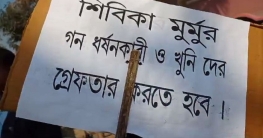 শিবিকা মুর্মুর
গন ধর্ষনকারী ও খুনি দের
গ্রেফতার করতে হবে।